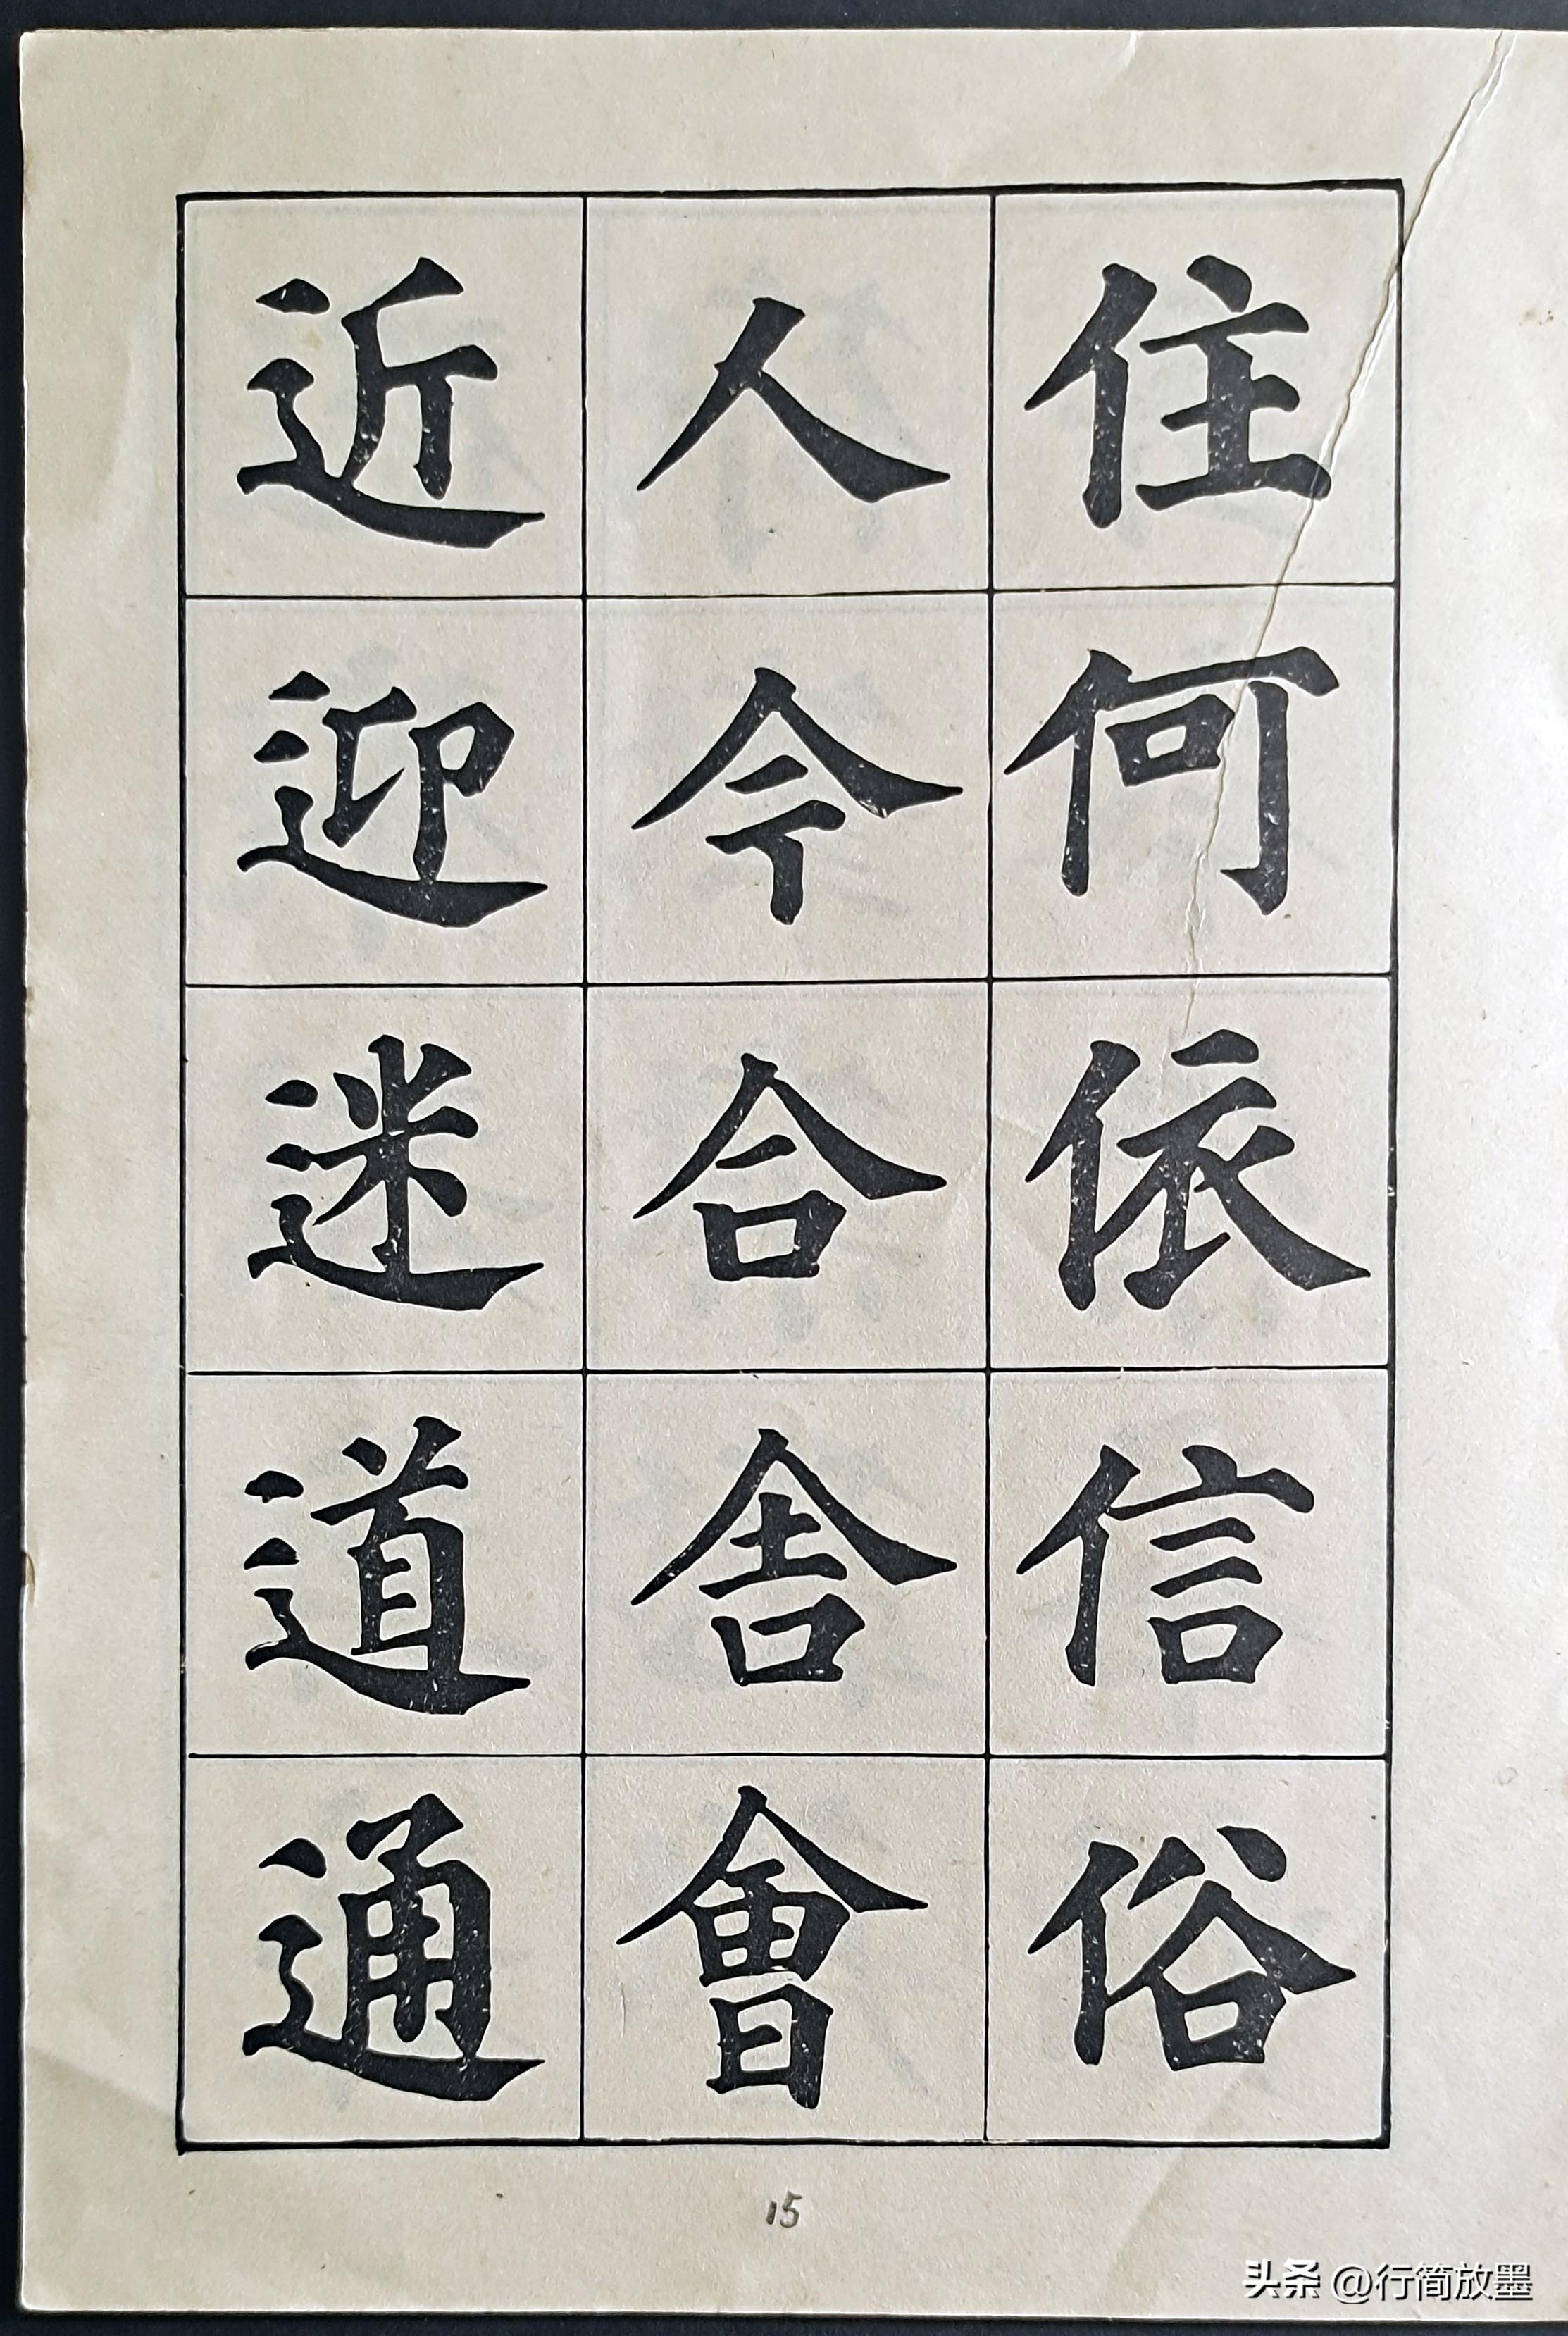 住何依信俗
人今合舍會
近迎迷道通
15
头条 @行简放墨